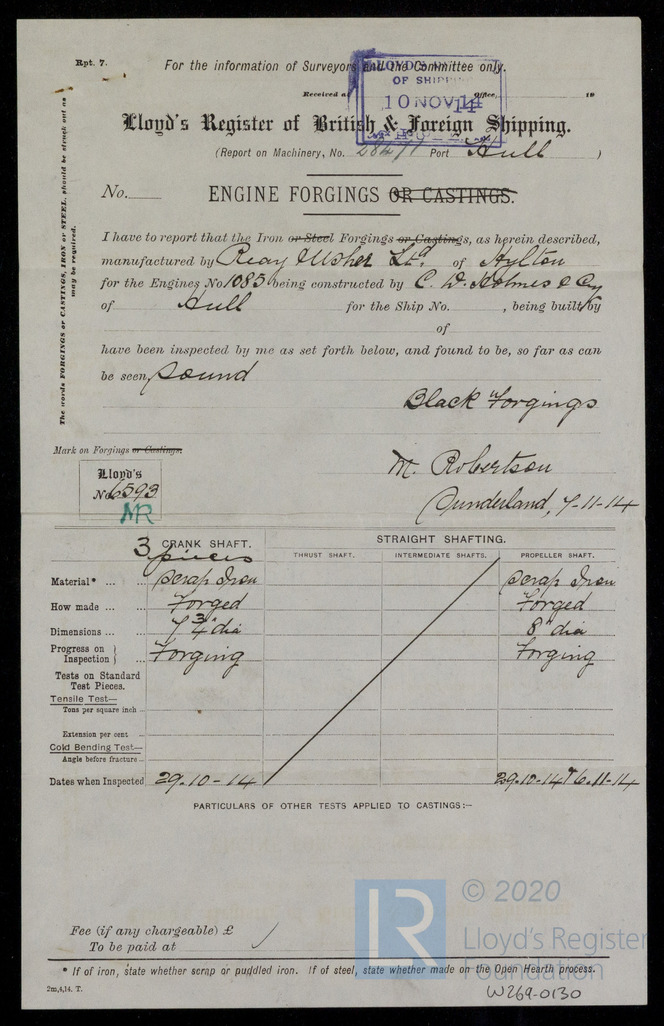 Rpt. 7.
For the information of Surveyors and the Committee only.
LLOYD'S
OF SHIPPING
10 NOV 14
Received at Office, 19
Lloyd's Register of British & Foreign Shipping.
(Report on Machinery, No. 28471 Port Hull )
No.
ENGINE FORGINGS OR CASTINGS.
The words FORGINGS or CASTINGS, IRON or STEEL, should be struck out as
may be required.
I have to report that the Iron or Steel Forgings or Castings, as herein described,
manufactured by Reay Usher Ltd. of Hylton
for the Engines No 1085 being constructed by C. D. Holmes & Coy
of Hull for the Ship No. , being built by
of
have been inspected by me as set forth below, and found to be, so far as can
be seen, sound
Black Forgings
Mark on Forgings or Castings.
Lloyd's
No 6593
MR
M. Robertson
Sunderland, 7-11-14
3 CRANK SHAFT.
pieces
STRAIGHT SHAFTING.
THRUST SHAFT. INTERMEDIATE SHAFTS. PROPELLER SHAFT.
Material* ... ... Scrap Iron Scrap Iron
How made ... ... Forged Forged
Dimensions ... ... 7 3/4" dia 8" dia
Progress on } Inspection } ... Forging Forging
Tests on Standard
Test Pieces.
Tensile Test—
Tons per square inch ...
Extension per cent ...
Cold Bending Test—
Angle before fracture ...
Dates when Inspected 29-10-14 29-10-14 & 6-11-14
PARTICULARS OF OTHER TESTS APPLIED TO CASTINGS:—
Fee (if any chargeable) £
To be paid at
* If of iron, state whether scrap or puddled iron. If of steel, state whether made on the Open Hearth process.
2m,4,14. T.
LR
© 2020
Lloyd's Register
Foundation
W269-0130